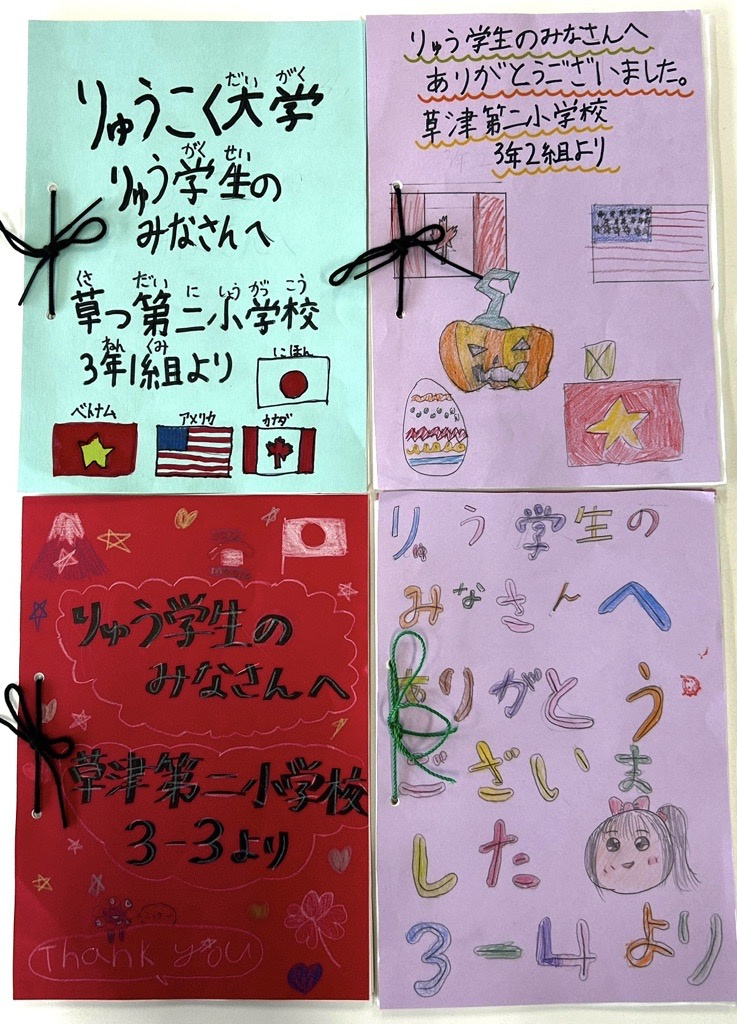 だい がく
りゅうこく大学
がく せい
りゅう学生の
みなさんへ
くさ だい に しょう がっ こう
草つ第二小学校
ねん くみ
3年1組より
にほん
べトナム
アメリカ
カナダ
りゅう学生のみなさんへ
ありがとうございました。
草津第二小学校
3年2組より
りゅう学生の
みなさんへ
草津第二小学校
3-3より
Thank you
りゅう学生の
みなさんへ
ありがとう
ございま
した
3-4より